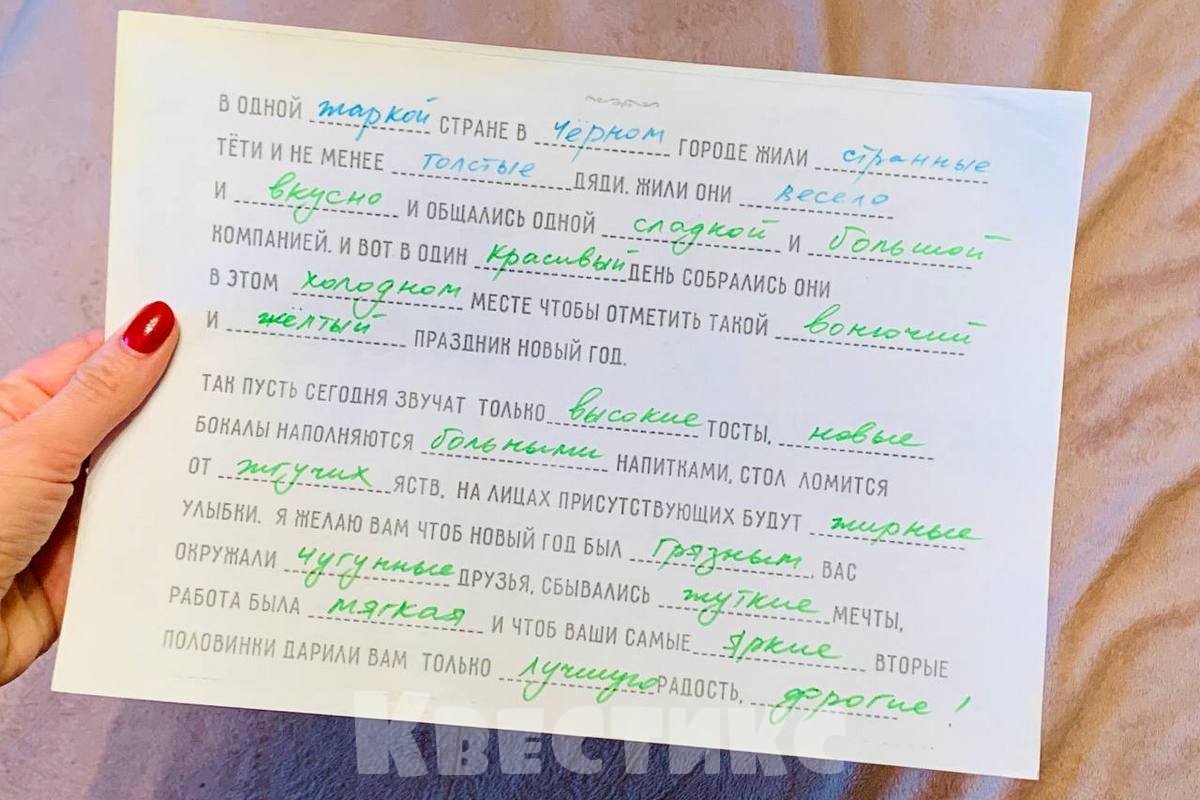 В ОДНОЙ жаркой СТРАНЕ В чёрном ГОРОДЕ ЖИЛИ странные
ТЁТИ И НЕ МЕНЕЕ толстые ДЯДИ. ЖИЛИ ОНИ весело
И вкусно И ОБЩАЛИСЬ ОДНОЙ сладкой И большой
КОМПАНИЕЙ. И ВОТ В ОДИН красивый ДЕНЬ СОБРАЛИСЬ ОНИ
В ЭТОМ холодном МЕСТЕ ЧТОБЫ ОТМЕТИТЬ ТАКОЙ вонючий
И жёлтый ПРАЗДНИК НОВЫЙ ГОД.
ТАК ПУСТЬ СЕГОДНЯ ЗВУЧАТ ТОЛЬКО высокие ТОСТЫ, новые
БОКАЛЫ НАПОЛНЯЮТСЯ больными НАПИТКАМИ, СТОЛ ЛОМИТСЯ
ОТ жгучих ЯСТВ, НА ЛИЦАХ ПРИСУТСТВУЮЩИХ БУДУТ жирные
УЛЫБКИ. Я ЖЕЛАЮ ВАМ ЧТОБ НОВЫЙ ГОД БЫЛ грязным, ВАС
ОКРУЖАЛИ чугунные ДРУЗЬЯ, СБЫВАЛИСЬ жуткие МЕЧТЫ,
РАБОТА БЫЛА мягкая И ЧТОБ ВАШИ САМЫЕ яркие ВТОРЫЕ
ПОЛОВИНКИ ДАРИЛИ ВАМ ТОЛЬКО лучшую РАДОСТЬ, дорогие!
КВЕСТИКС